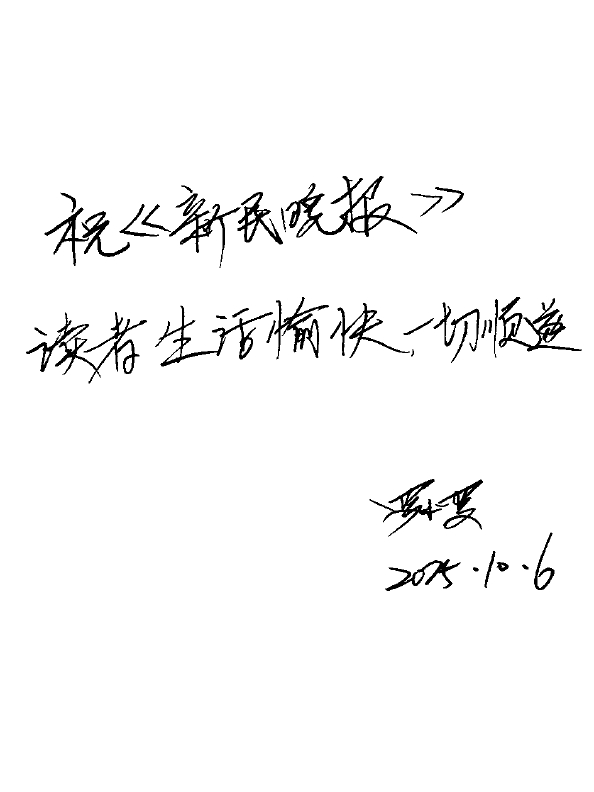 祝《新民晚报》
读者生活愉快,一切顺遂
2025.10.6